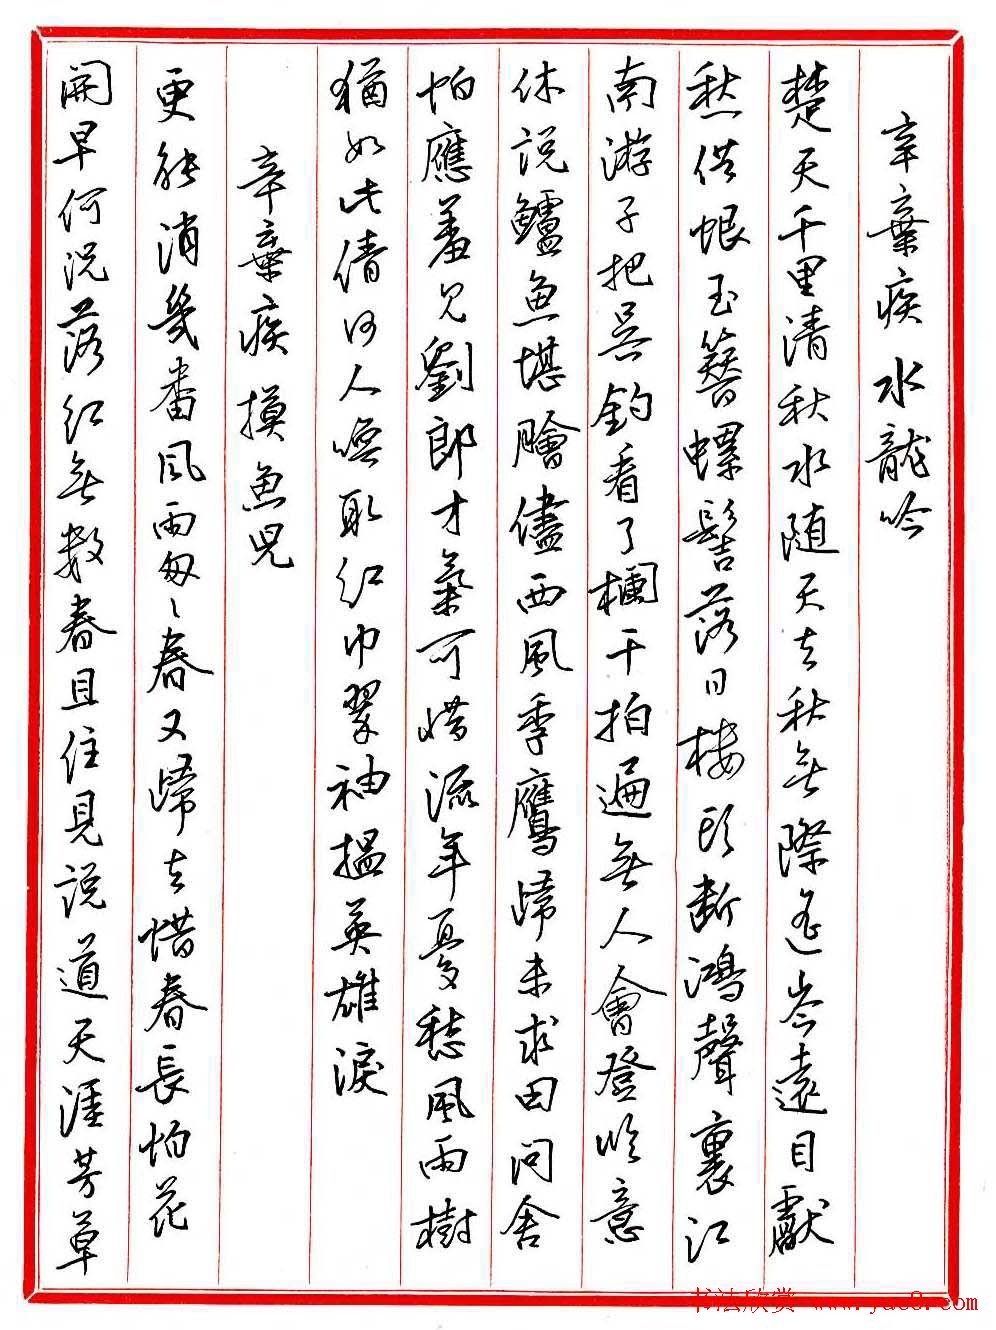 辛棄疾 水龍吟
楚天千里清秋水随天去秋無際遙岑遠目獻
愁供恨玉簪螺髻落日樓頭斷鴻聲裏江
南游子把吳鈎看了欄干拍遍無人會登臨意
休説鱸魚堪膾儘西風季鷹歸未求田問舍
怕應羞見劉郎才氣可惜流年憂愁風雨樹
猶如此倩何人喚取紅巾翠袖揾英雄淚
辛棄疾摸魚兒
更能消幾番風雨匆々春又歸去惜春長怕花
開早何況落紅無數春且住見説道天涯芳草
书法欣赏 www.yac8.com